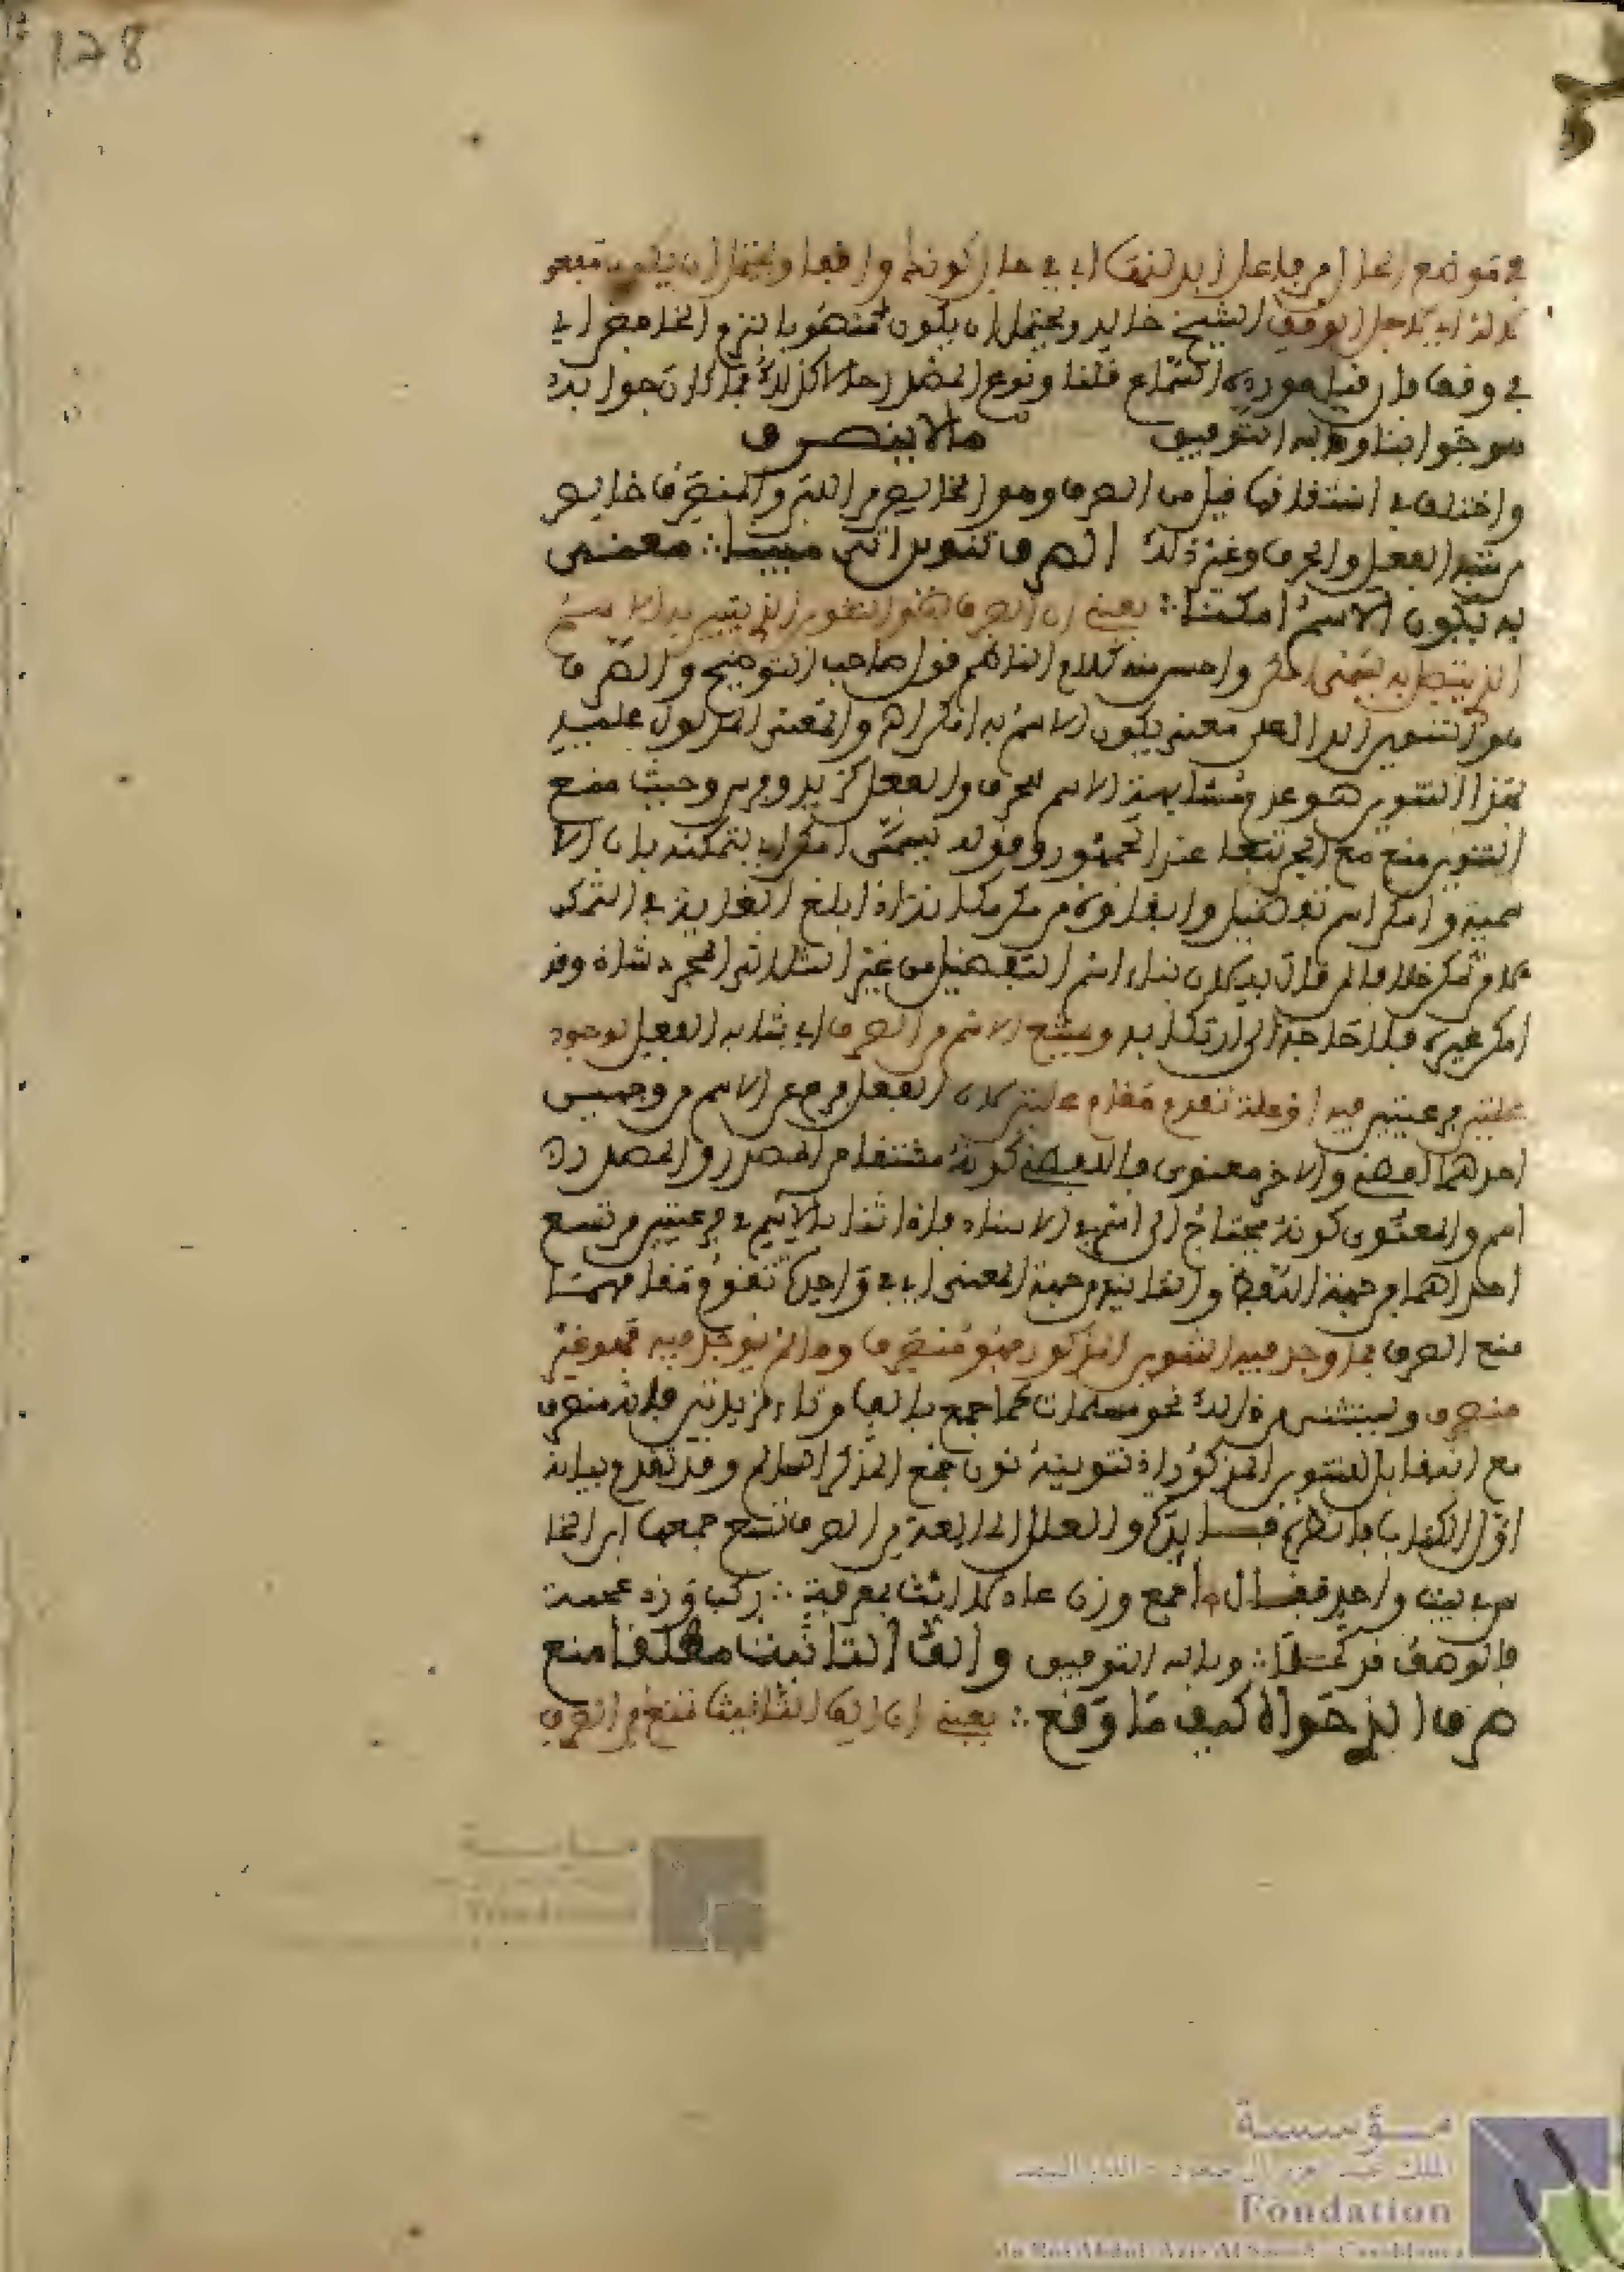 128
في موضع الحال من فاعل ابدلنها اي في حال كونك واقفا ويحتمل ان يكون مفعو
لا له اي لاجل الوقف الشيخ خالد ويحتمل ان يكون منصوبا بنزع الخافض اي
في وقف فان قيل مورده السماع قلنا وقوع المصدر حالا كذلك فما كان جوابه
هو جوابنا وبالله التوفيق ما لا ينصرف
واختلف في اشتقاقه فيل من الصرف وهو الخالص من اللبن والمنصرف خالص
من شبه الفعل والحرف وغير ذلك الصرف تنوين اتى مبينا ∴ معنى
به يكون الاسم امكنا ∴ يعني ان الصرف هو التنوين الذي يتبين به ان الاسم
الذي يتصل به يسمى امكن واحسن منه كلام الناظم قول صاحب التوضيح والصرف
هو التنوين الدال على معنى يكون الاسم به امكن اه والمعنى المدلول عليه
بهذا التنوين هو عدم مشابهة الاسم للحرف والفعل كزيد وفرس وحيث منع
التنوين منع مع الجر تبعا عند الجمهور وقوله يسمى امكن اي لتمكنه باب الا
سمية وامكن اسم تفضيل وابقاؤه من مكن مكانة اذا بلغ الغاية في التمكن
لا من تمكن خلافا لمن قال به لان بناء اسم التفضيل من غير الثلاثي المجرد شاذ وقد
امكن غيره فلا حاجة الى ارتكابه ويمنع الاسم من الصرف اي يشابه الفعل لوجود
علتين فرعيتين فيه او علة تقوم مقام علتين لان الفعل فرع عن الاسم من وجهين
احدهما لفظي والاخر معنوي فاللفظي كونه مشتقا من المصدر والمصدر
اسم والمعنوي كونه يحتاج الى اسم في الاسناد فاذا شابه الاسم في فرعيتين من تسع
احداهما من جهة اللفظ والثانية من جهة المعنى او في واحدة تقوم مقامهما
منع الصرف فما وجد فيه التنوين المذكور فهو منصرف وما لم يوجد فيه فهو غير
منصرف ويستثنى من ذلك نحو مسلمات مما جمع بالف وتاء مزيدتين فانه منصرف
مع انه فاقد للتنوين المذكور اذ تنوينه نون جمع المذكر السالم وقد تقدم بيانه
اول الكتاب فانظره فــايدة والعلل المانعة من الصرف تسع جمعها ابن النحا
س في بيت واحد فقــال اجمع وزن عادلا انث بمعرفة ∴ ركب وزد عجمة
فالوصف قد كملا ∴ وبالله التوفيق والف التانيث مطلقا منع
صرف الذي حواه كيف ما وقع ∴ يعني ان الف التانيث تمنع من الصرف
مؤسسة
الملك عبد العزيز آل سعود - الدار البيضاء
Fondation
du Roi Abdul-Aziz Al Saoud - Casablanca